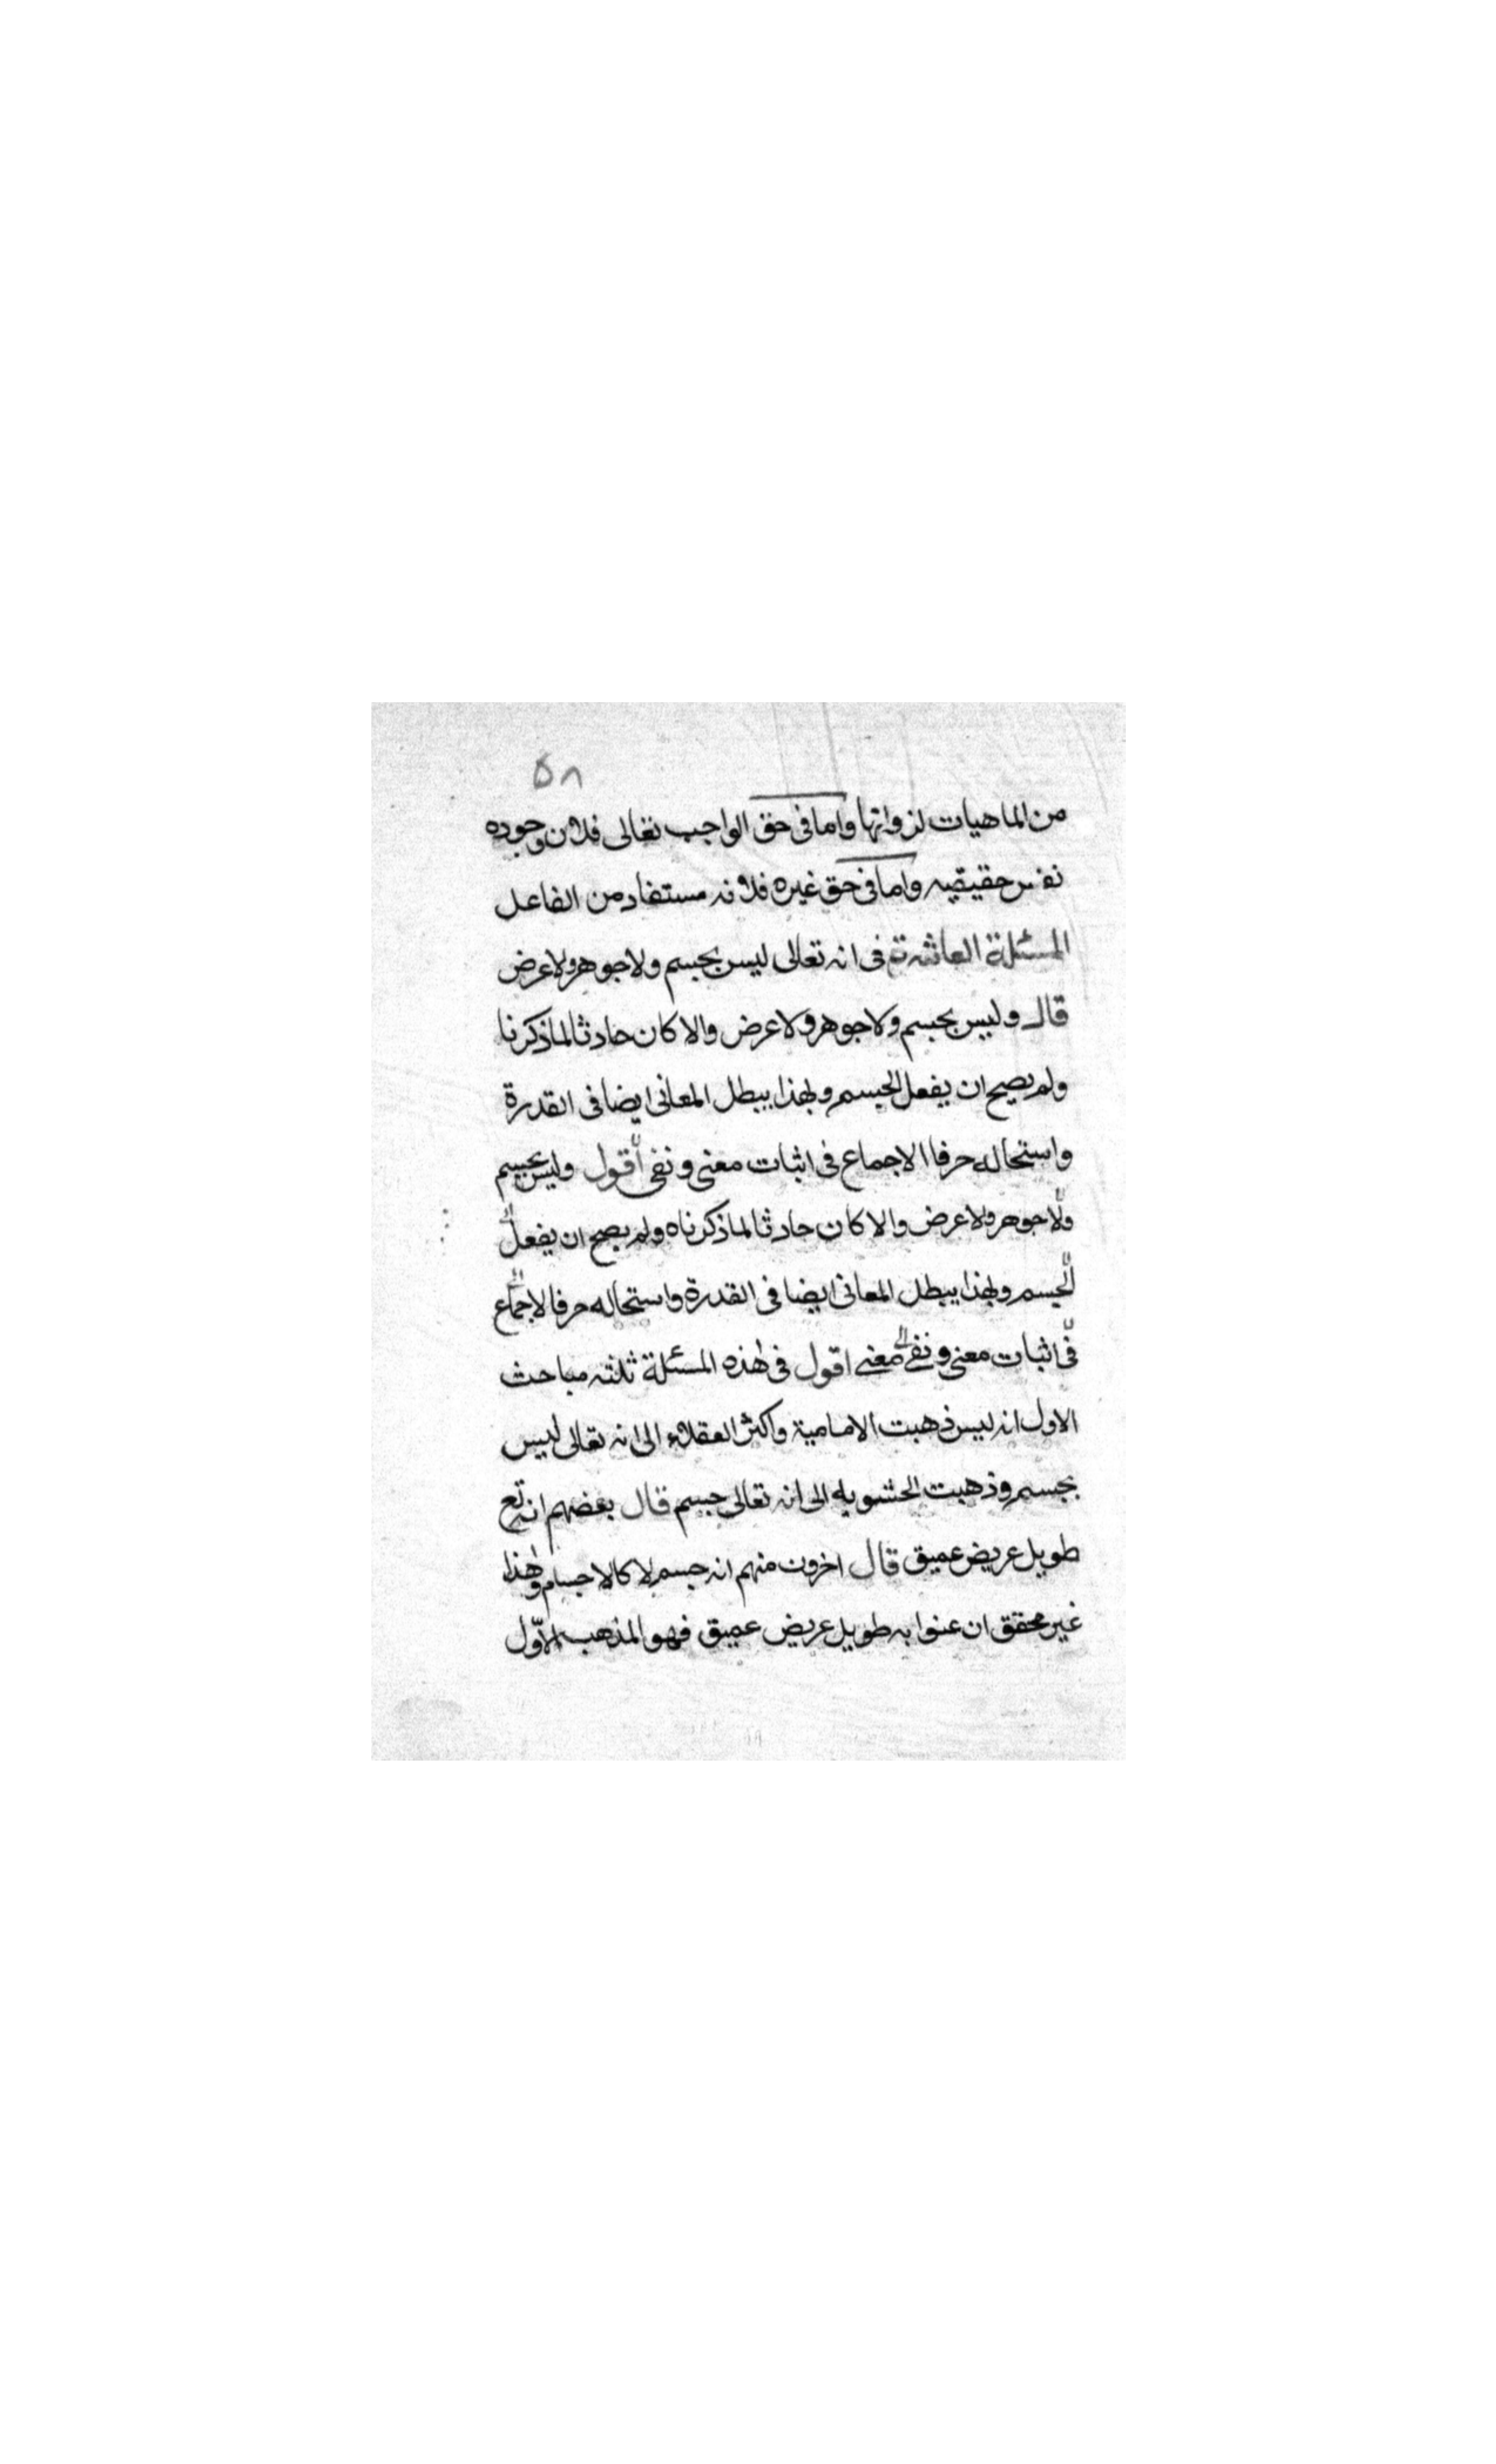 ٥٨
من الماهيات لذواتها واما فى حق الواجب تعالى فلان وجوده
نفس حقيقيه واما فى حق غيره فلانه مستفاد من الفاعل
المسئلة العاشرة فى انه تعالى ليس بجسم ولا جوهر ولا عرض
قال وليس بجسم ولا جوهر ولا عرض والا كان حادثا لما ذكرنا
ولم يصح ان يفعل الجسم وبهذا يبطل المعانى ايضا فى القدرة
واستحاله حرفا الاجماع فى اثبات معنى ونفى اقول وليس بجسم
ولا جوهر ولا عرض والا كان حادثا لما ذكرناه ولم يصح ان يفعل
الجسم وبهذا يبطل المعانى ايضا فى القدرة واستحاله حرفا لاجماع
فى اثبات معنى ونفى معنى اقول فى هذه المسئلة ثلثه مباحث
الاول انه ليس ذهبت الامامية واكثر العقلاء الى انه تعالى ليس
بجسم وذهبت الحشويه الى انه تعالى جسم قال بعضهم انه تع
طويل عريض عميق قال اخرون منهم انه جسم لا كالاجسام وهذا
غير محقق ان عنوا به طويل عريض عميق فهو المذهب الاوّل